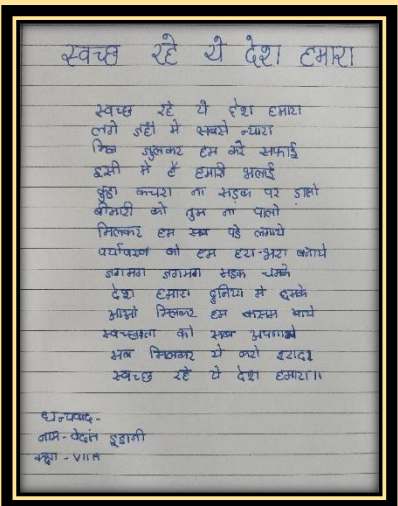 स्वच्छ रहे ये देश हमारा
स्वच्छ रहे ये देश हमारा
लगे जहाँ में सबसे न्यारा
मिल जुलकर हम करे सफाई
इसी में है हमारी भलाई
कुड़ा कचरा ना सड़क पर डालो
बीमारी को तुम ना पालो
मिलकर हम सब पेड़ लगाये
पर्यावरण को हम हरा-भरा बनाये
जगमग जगमग सड़क चमके
देश हमारा दुनिया में दमके
आओ मिलकर हम कसम खाये
स्वच्छता को सब अपनाये
सब मिलकर ये करो इरादा
स्वच्छ रहे ये देश हमारा।।
धन्यवाद-
नाम-वेदांत डुडानी
कक्षा - VII A